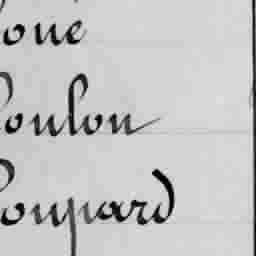 oué
oulon
oupard